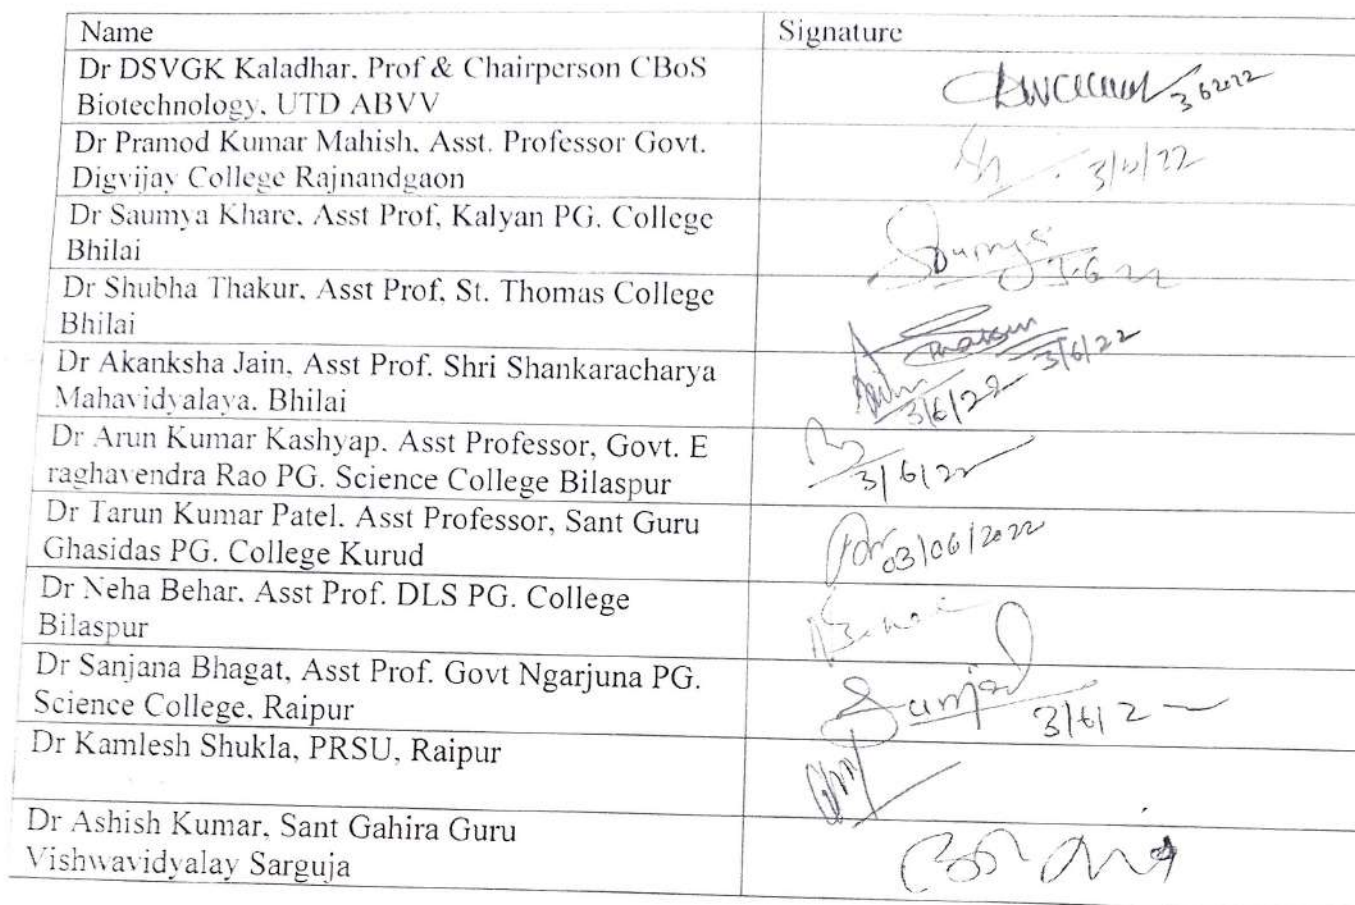 Name
Signature
Dr DSVGK Kaladhar, Prof & Chairperson CBoS
Biotechnology, UTD ABVV
3 6 2022
Dr Pramod Kumar Mahish, Asst. Professor Govt.
Digvijay College Rajnandgaon
3/6/22
Dr Saumya Khare, Asst Prof, Kalyan PG. College
Bhilai
Saumya
3.6.22
Dr Shubha Thakur, Asst Prof, St. Thomas College
Bhilai
Thakur
3/6/22
Dr Akanksha Jain, Asst Prof. Shri Shankaracharya
Mahavidyalaya. Bhilai
3/6/22
Dr Arun Kumar Kashyap. Asst Professor, Govt. E
raghavendra Rao PG. Science College Bilaspur
3/6/22
Dr Tarun Kumar Patel. Asst Professor, Sant Guru
Ghasidas PG. College Kurud
03/06/2022
Dr Neha Behar. Asst Prof. DLS PG. College
Bilaspur
Dr Sanjana Bhagat, Asst Prof. Govt Ngarjuna PG.
Science College, Raipur
3/6/2
Dr Kamlesh Shukla, PRSU, Raipur
Dr Ashish Kumar, Sant Gahira Guru
Vishwavidyalay Sarguja